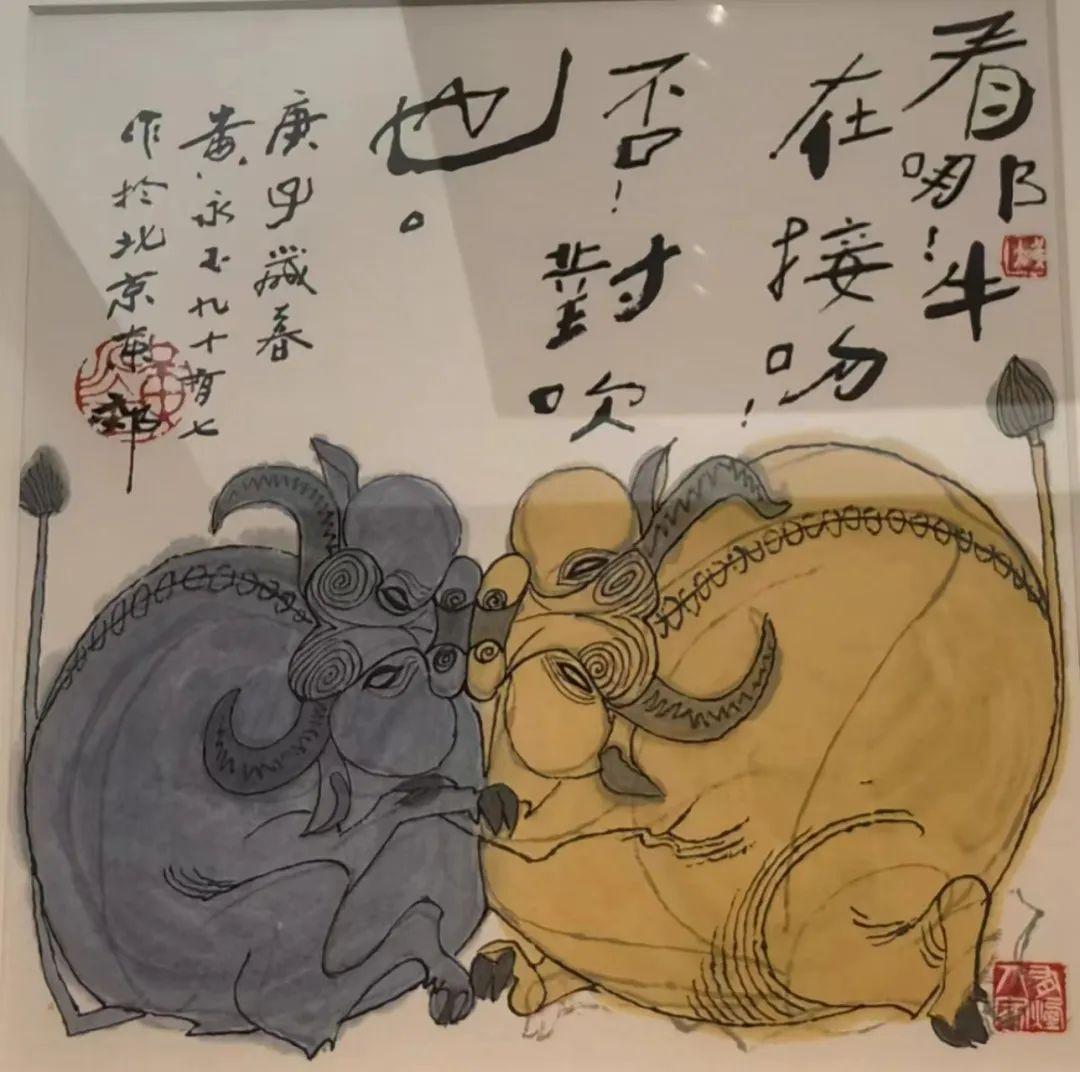 看哪!牛
在接吻!
否!對吹
也。
庚子歲春
黃永玉九十有七
作於北京東郊